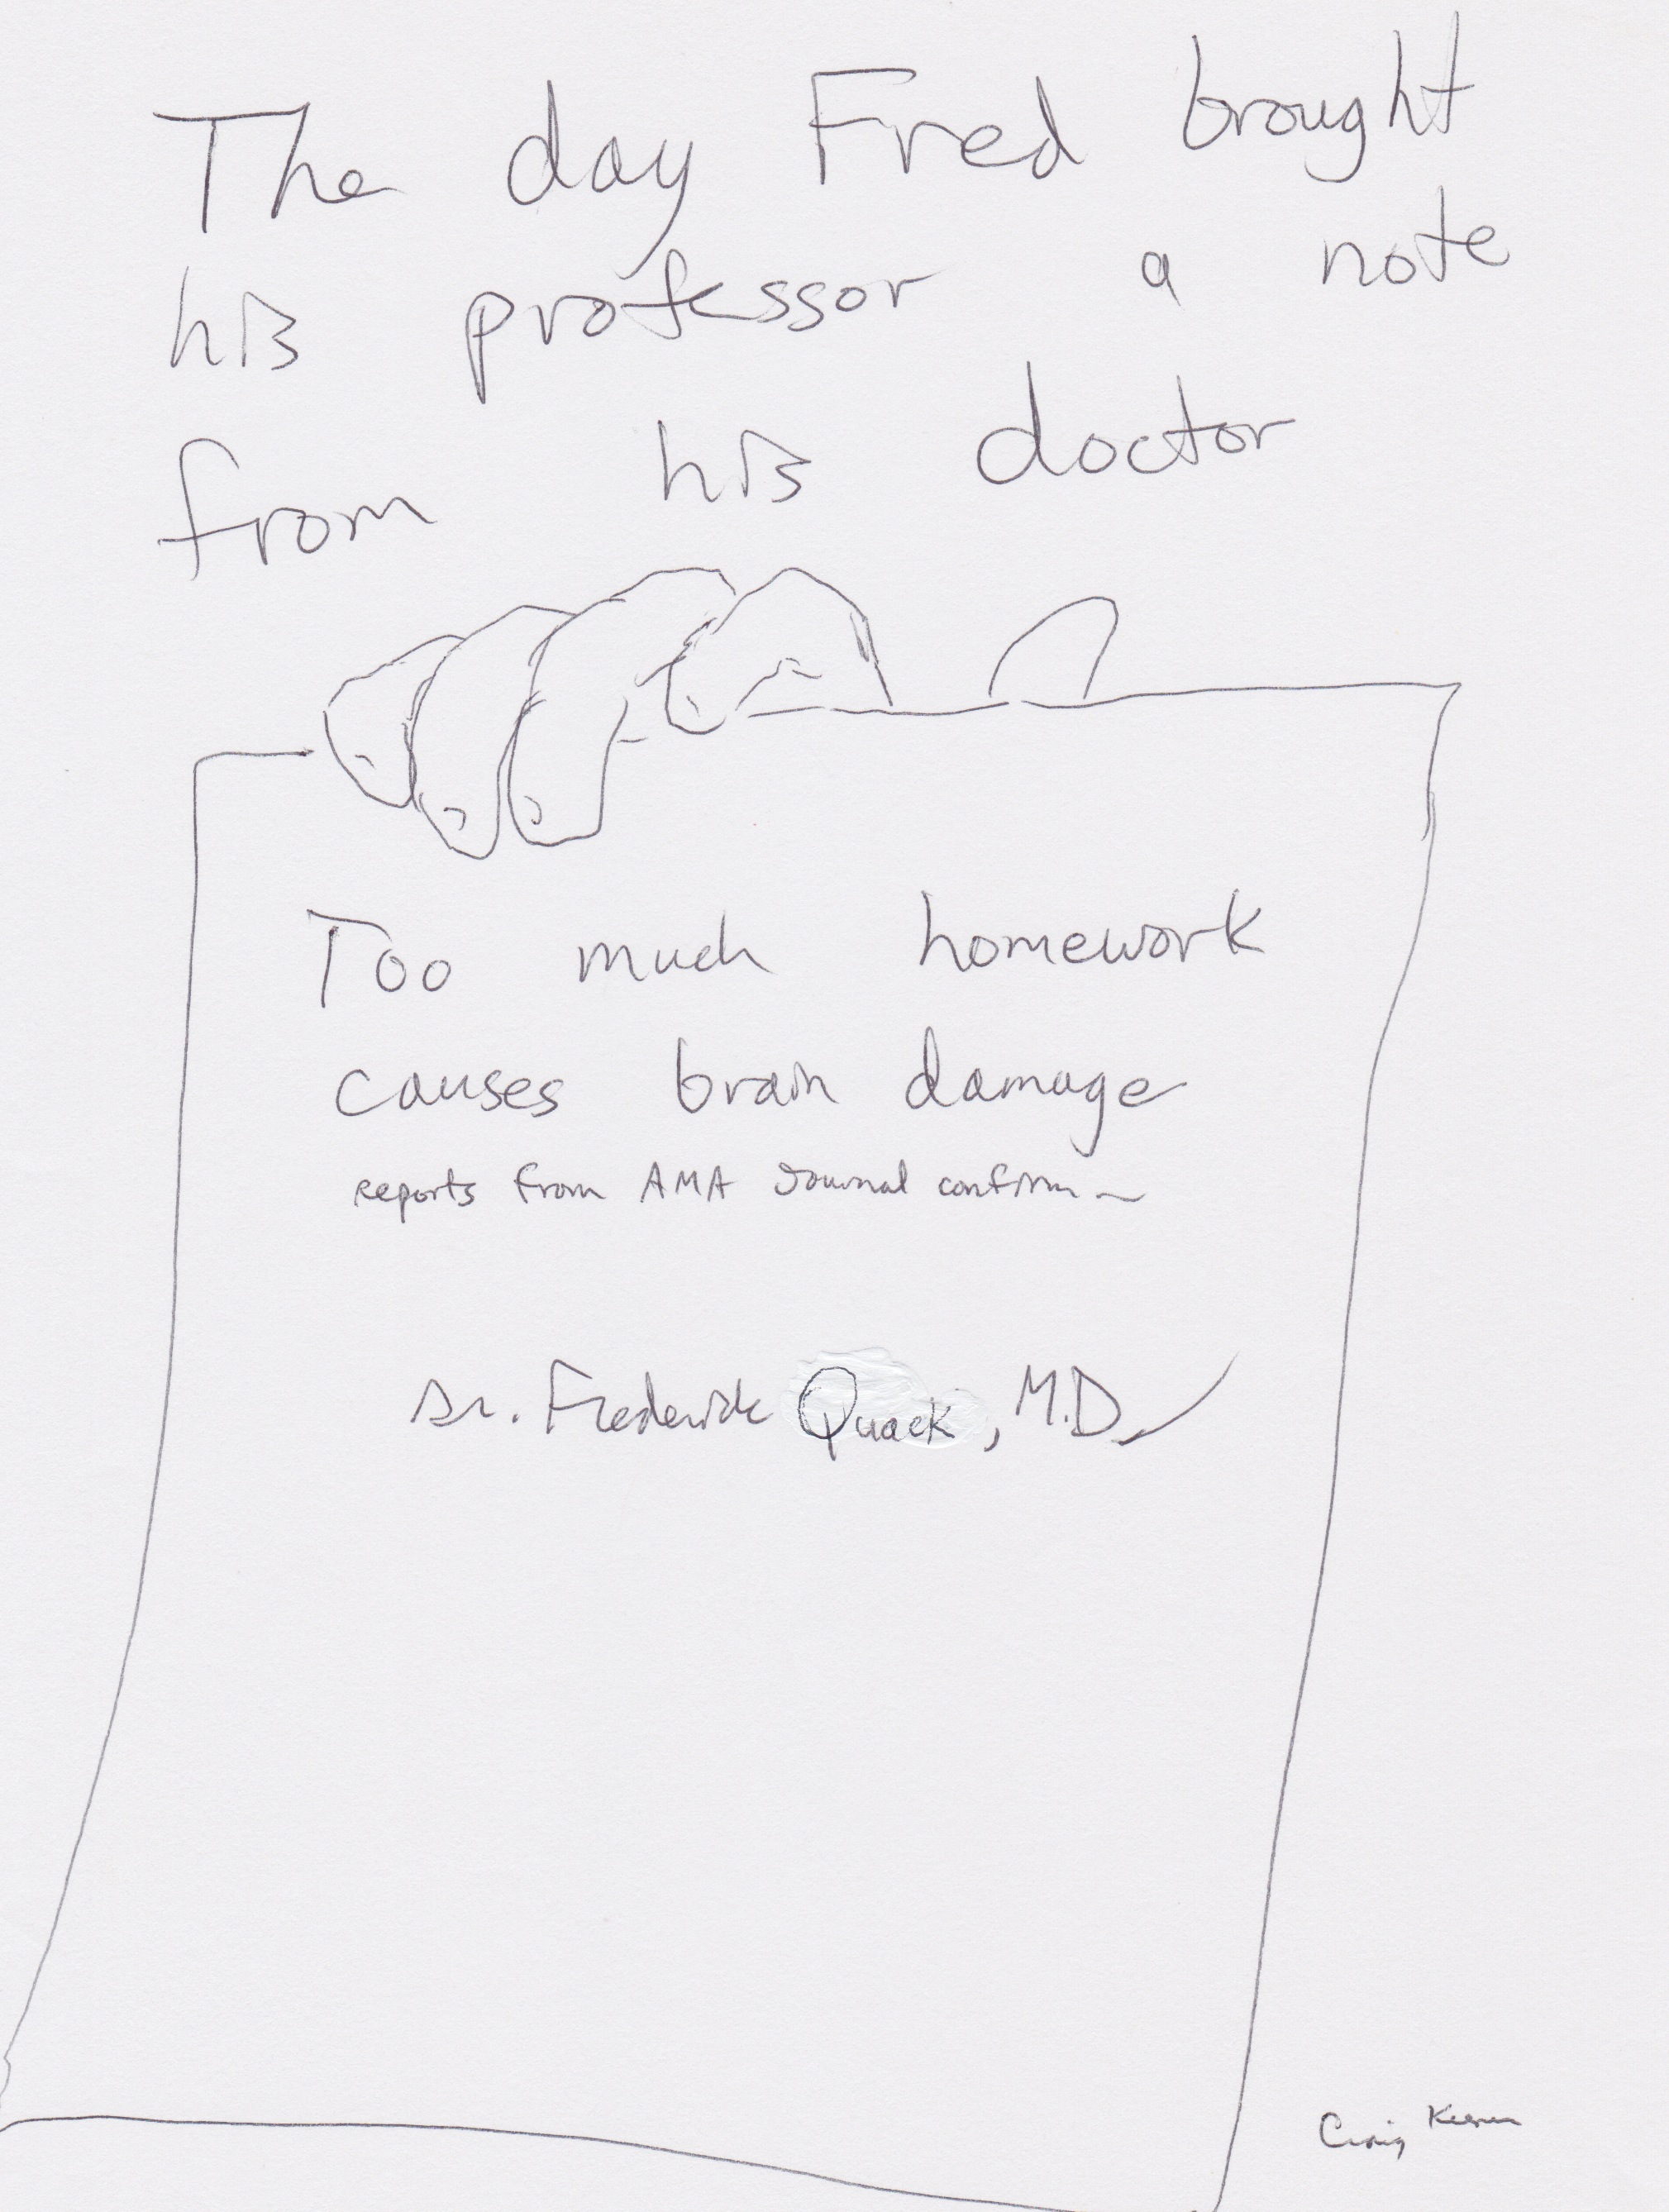 The day Fred brought
his professor a note
from his doctor
Too much homework
causes brain damage
reports from AMA Journal confirm
Dr. Frederick Quack, M.D.
Craig Keener